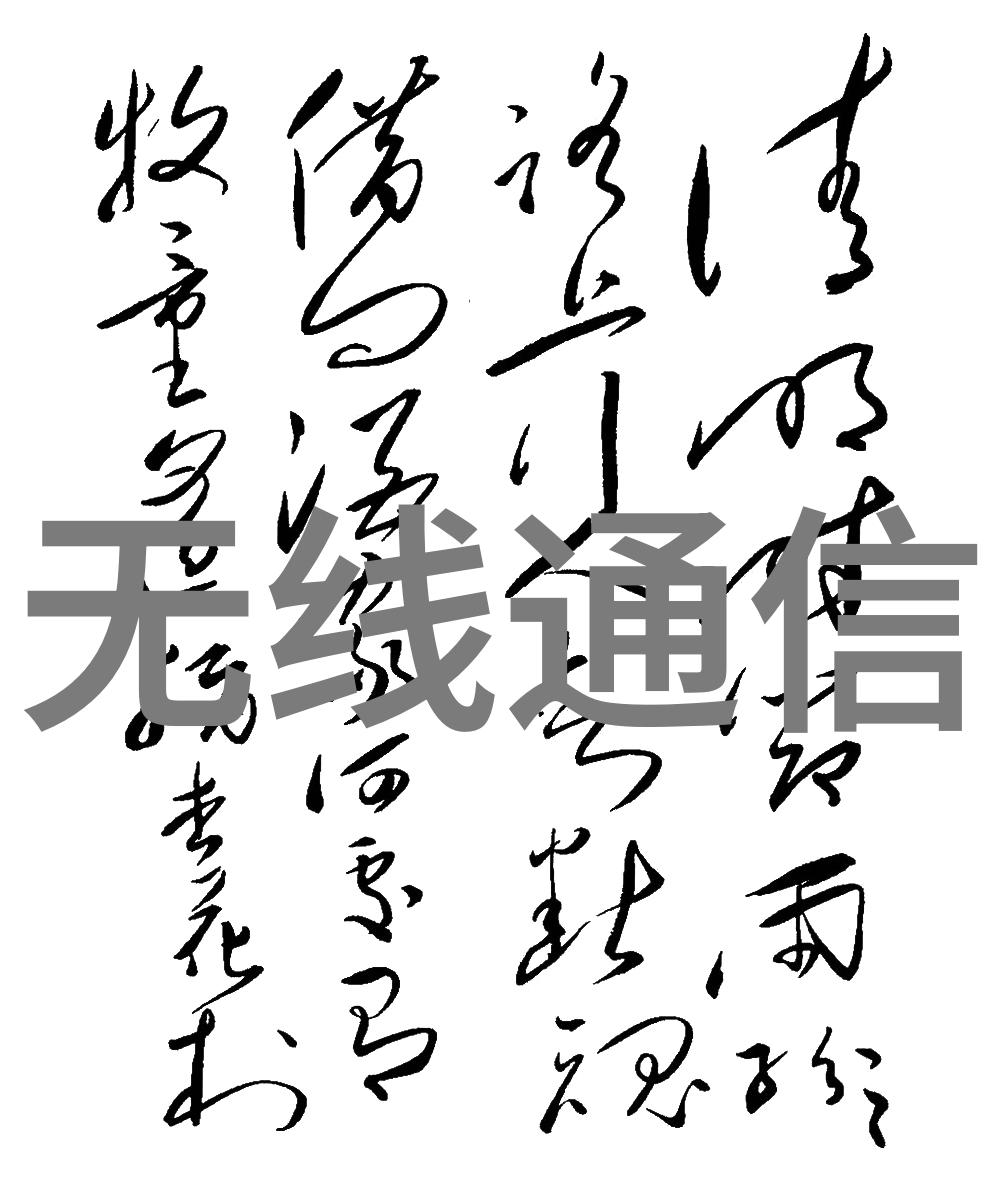 清明時節雨紛紛
路上行人欲斷魂
借问酒家何處有
牧童遥指杏花村
无线通信